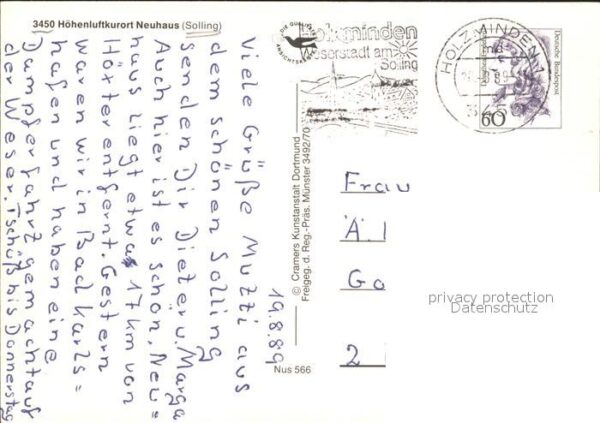 3450 Höhenluftkurort Neuhaus (Solling)
19.8.89
Viele Grüße Mutti aus
dem schönen Solling
senden Dir Dieter u. Marga
Auch hier ist es schön, Neu=
haus liegt etwa 17 km von
Höxter entfernt. Gestern
waren wir in Bad Karls=
hafen und haben eine
Dampferfahrt gemacht auf
der Weser. Tschüß bis Donnerstag
© Cramers Kunstanstalt Dortmund
Freigeg. d. Reg.-Präs. Münster 3492/70
Nus 566
Holzminden
Weserstadt am
Solling
HOLZMINDEN 1
Deutsche Bundespost
60
Frau
Ä. I
Go
2
privacy protection
Datenschutz